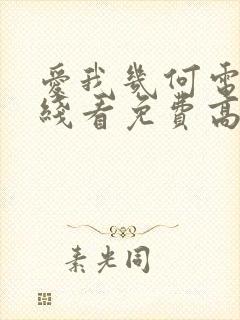 愛我幾何電
綫看免費高
素光同